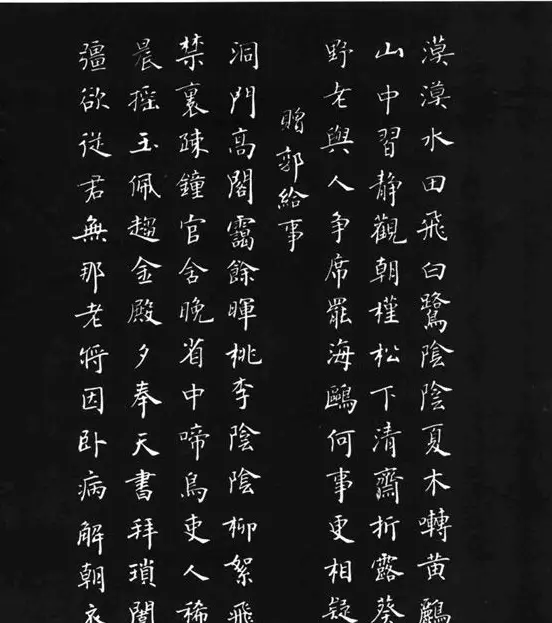 漠漠水田飛白鷺陰陰夏木囀黃鸝
山中習静觀朝槿松下清齋折露葵
野老與人爭席罷海鷗何事更相疑
贈郭給事
洞門高閣靄餘暉桃李陰陰柳絮飛
禁裏疎鐘官舍晚省中啼鳥吏人稀
晨搖玉佩趨金殿夕奉天書拜瑣闈
彊欲從君無那老將因卧病解朝衣